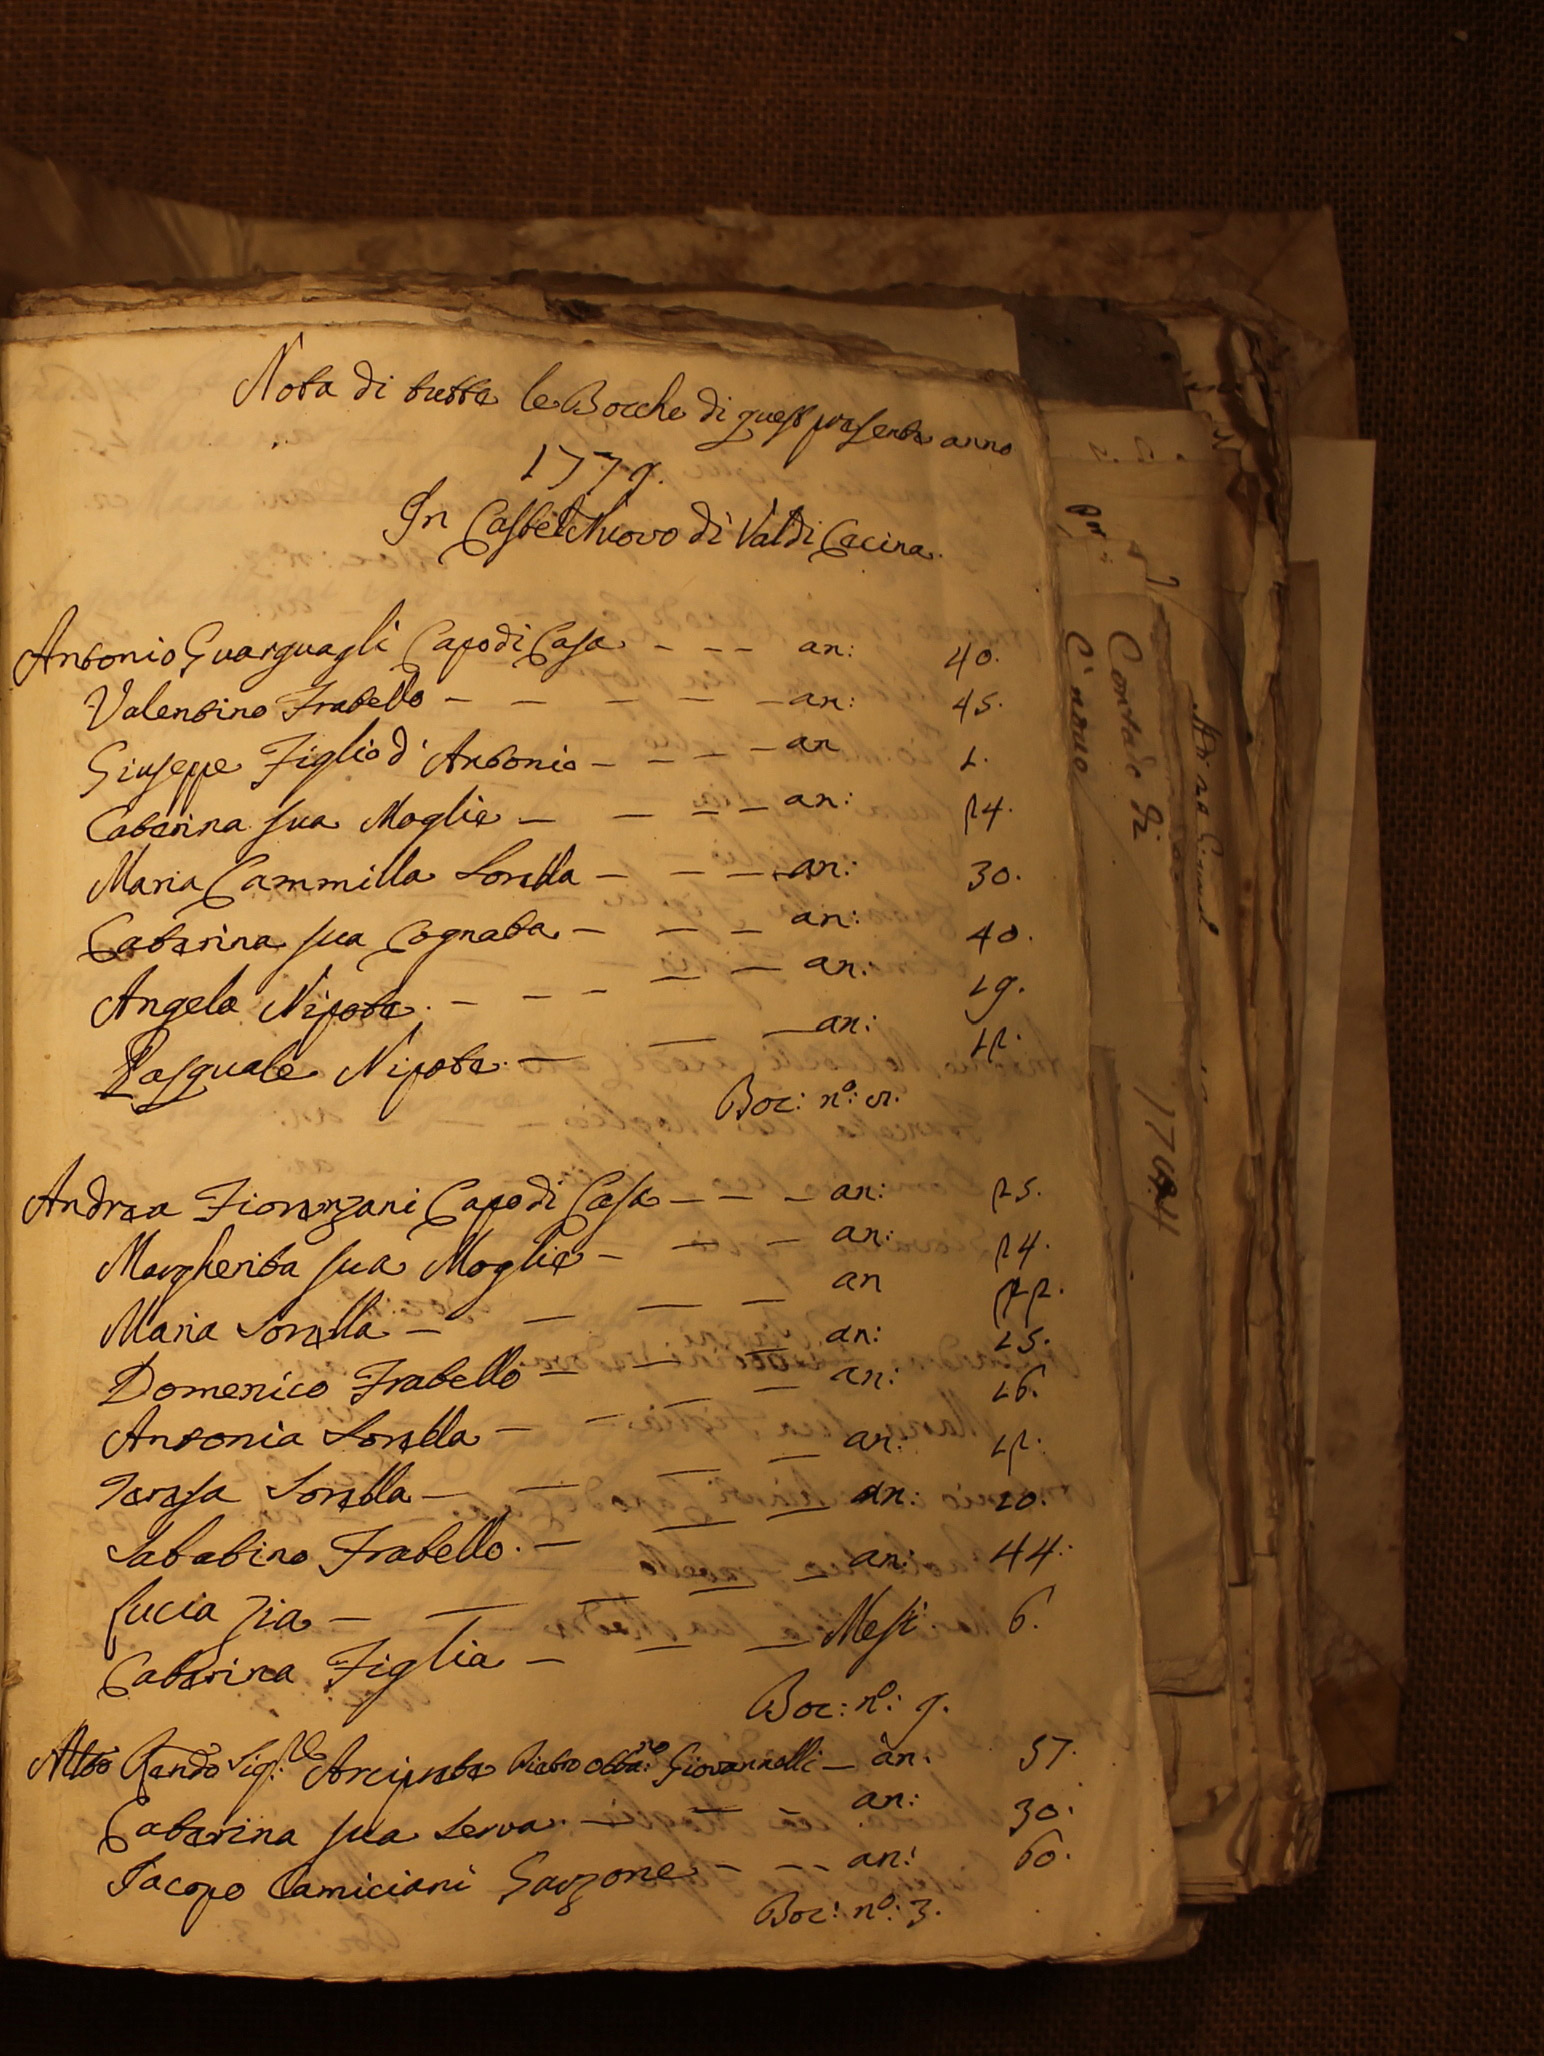 Nota di tutte le Bocche di quest presente anno
1779.
In CastelNuovo di Val di Cecina.
Antonio Guarguagli Capo di Casa - - - an: 40.
Valentino Fratello - - - - - an: 45.
Giuseppe Figlio d'Antonio - - - - an 1.
Caterina sua Moglie - - - - an: 24.
Maria Cammilla Sorella - - - an: 30.
Caterina sua Cognata - - - an: 40.
Angelo Nipote. - - - - - an: 19.
Pasquale Nipote. - - - an: 12.
Boc: n.º: 8.
Andrea Fiorenzani Capo di Casa - - - an: 25.
Margherita sua Moglie - - - an: 24.
Maria Sorella - - - - an 22.
Domenico Fratello - - - - an: 15.
Antonia Sorella - - - - an: 16.
Teresa Sorella - - - - an: 12.
Sabatino Fratello. - - - an: 10.
Lucia Zia - - - - - an: 44.
Caterina Figlia - - - Mesi 6.
Boc: n.º: 9.
Alto Rendo Sig.re Arciprete Pietro Giovannelli - an: 57.
Caterina sua Serva. - - an: 30.
Iacopo Camiciani Garzone - - - an: 60.
Boc: n.º: 3.
Contado di